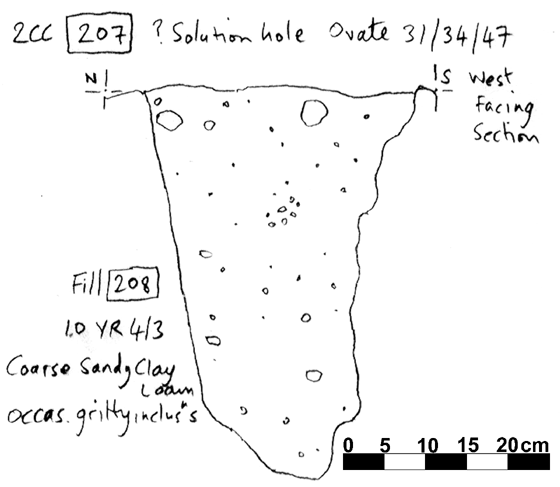 2CC 207 ? Solution hole Ovate 31/34/47
N S West
Facing
Section
Fill 208
10 YR 4/3
Coarse Sandy Clay
Loam
occas. gritty inclus^n s
0 5 10 15 20cm